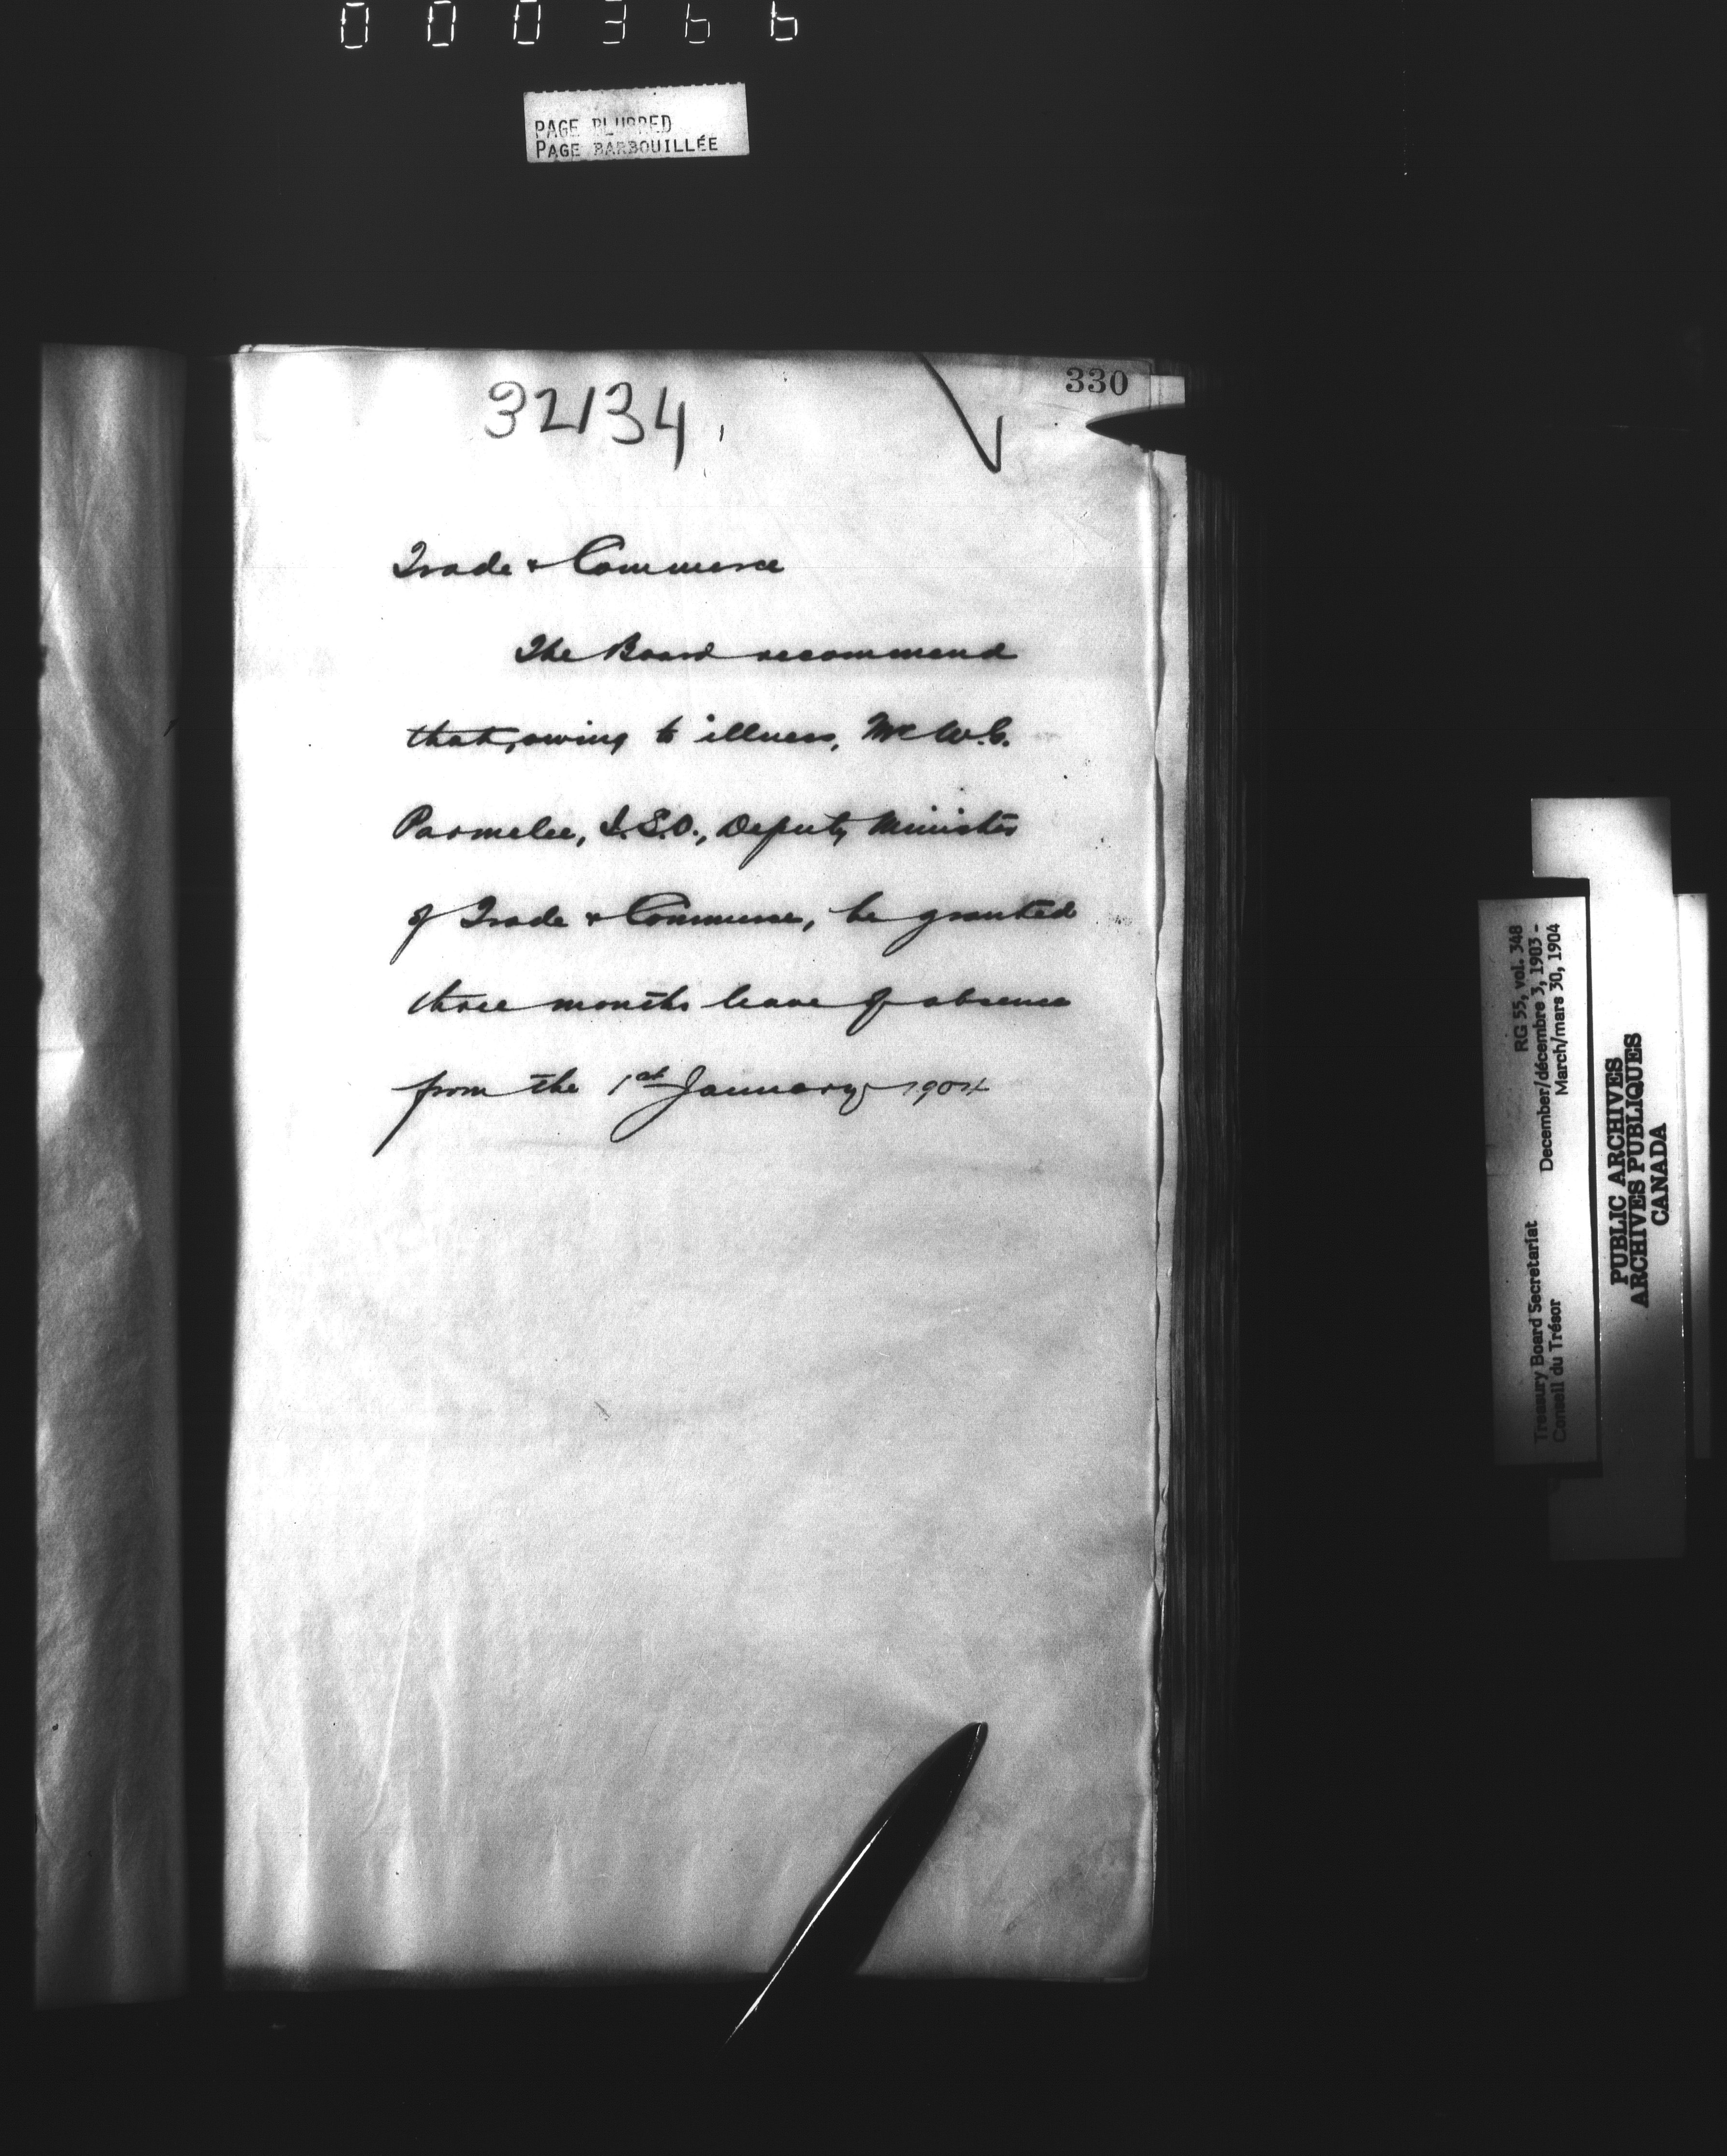 000366
PAGE BLURRED
PAGE BARBOUILLÉE
330
32134.
Trade & Commerce
The Board recommend
that, owing to illness, Mr W.G.
Parmelee, I.S.O., Deputy Minister
of Trade & Commerce, be granted
three months leave of absence
from the 1st January 1904
RG 55, vol. 348
December/décembre 3, 1903 -
March/mars 30, 1904
Treasury Board Secretariat
Conseil du Trésor
PUBLIC ARCHIVES
ARCHIVES PUBLIQUES
CANADA